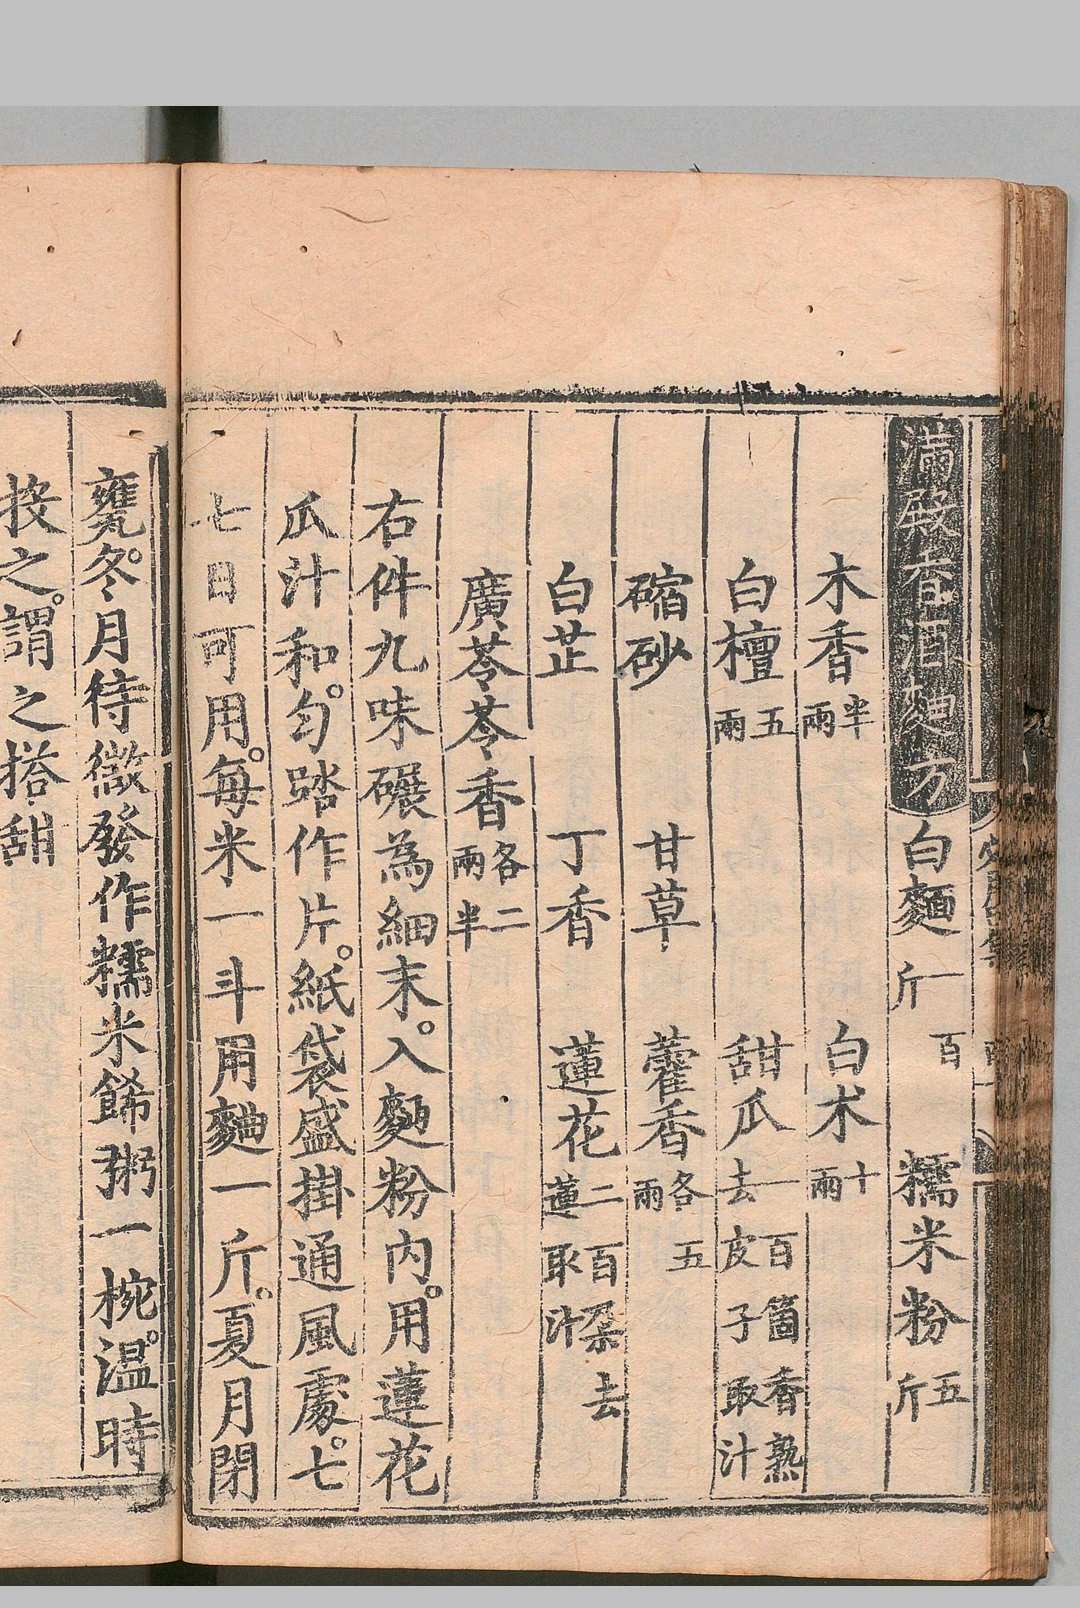 滿殿香酒麯方 白麵一百斤 糯米粉五斤
木香半兩 白术十兩
白檀五兩 甜瓜一百箇香熟去皮子取汁
縮砂 甘草 藿香各五兩
白芷 丁香 蓮花二百朶去蓮取汁
廣苓苓香各二兩半
右件九味碾為細末。入麪粉內。用蓮花
瓜汁和勻。踏作片。紙袋盛掛通風處。七
七日可用。每米一斗用麯一斤。夏月閉
甕。冬月待微發作糯米餙粥一椀。温時
投之。謂之搭甜